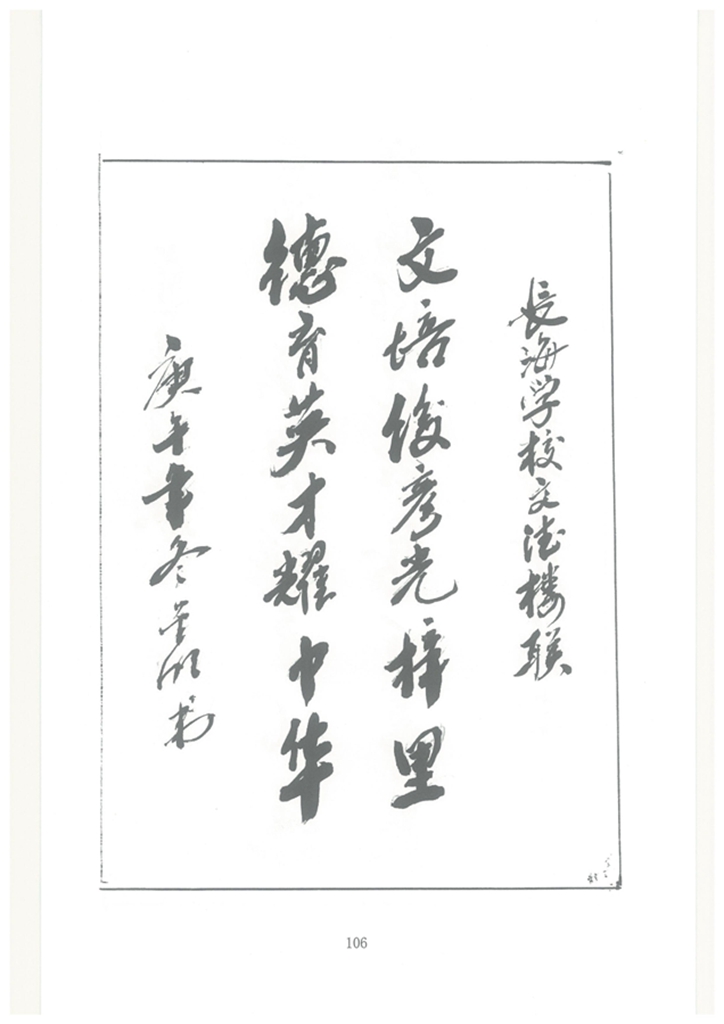 長海学校文德楼联
文培俊彦光梓里
德育英才耀中华
庚午年冬
书
106